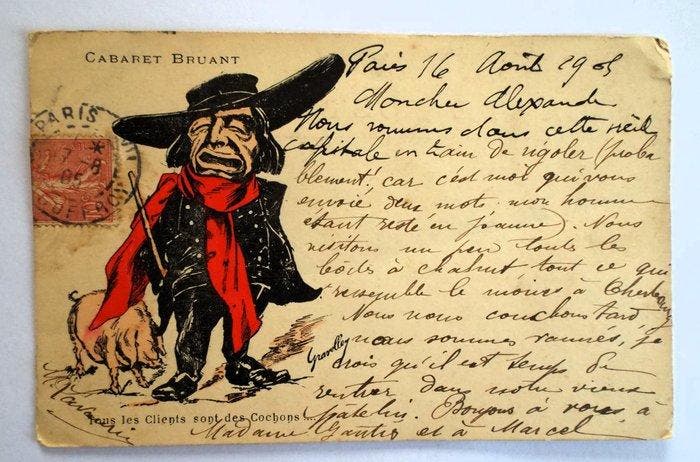 CABARET BRUANT
PARIS
7 * 8
05
Paris 16 Août 1905
Mon cher Alexandre
Nous sommes dans cette vieille
capitale en train de rigoler (proba
blement, car c'est moi qui vous
envoie deux mots mon homme
étant resté en
Nous
visitons un peu toutes les
boîtes à chahut, tout ce qui
ressemble le moins à Cherbourg
Nous nous couchons tard,
nous sommes vannés, je
crois qu'il est temps de
rentrer dans notre vieux
patelin. Bonjour à vous, à
Madame et à Marcel
Tous les Clients sont des Cochons...